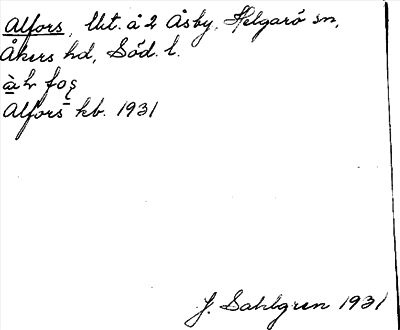 Alfors, Utt. å 2 Åsby, Helgarö sn,
Åkers hd, Söd. l.
Alfors kb. 1931
J. Sahlgren 1931